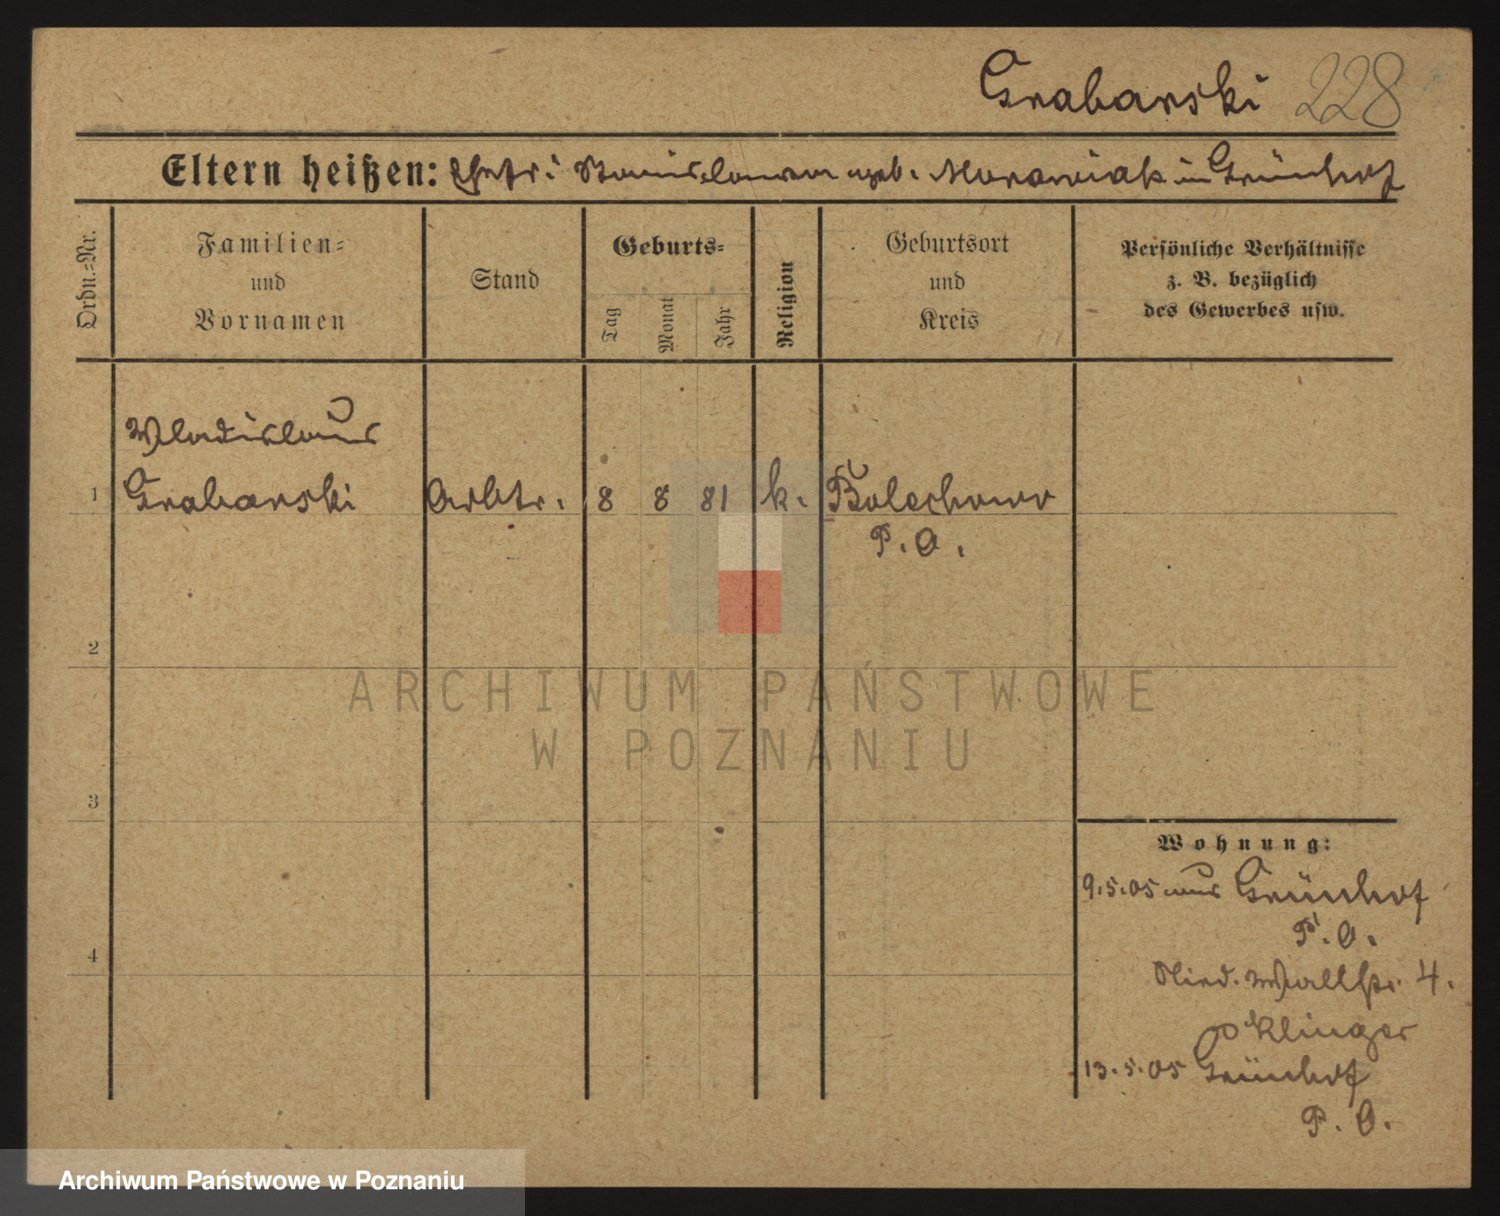 Grabarski 228
Eltern heißen: Stanislawa geb. Morawiak in Grünhof
Ordn.=Nr.
Familien=
und
Vornamen
Stand
Geburts=
Tag
Monat
Jahr
Religion
Geburtsort
und
Kreis
Persönliche Verhältnisse
z. B. bezüglich
des Gewerbes usw.
Wladislaus
1 Grabarski Arbtr. 8 8 81 k. Bolechowo
P. O.
2
ARCHIWUM PAŃSTWOWE
W POZNANIU
3
Wohnung:
9.5.05 aus Grünhof
P. O.
4
Nied. Wallstr. 4.
Klinger
13.5.05 Grünhof
P. O.
Archiwum Państwowe w Poznaniu